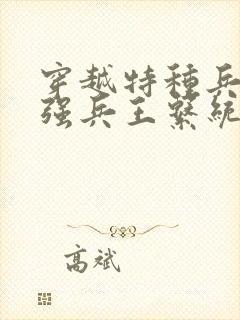 穿越特種兵
強兵王繫統
高斌